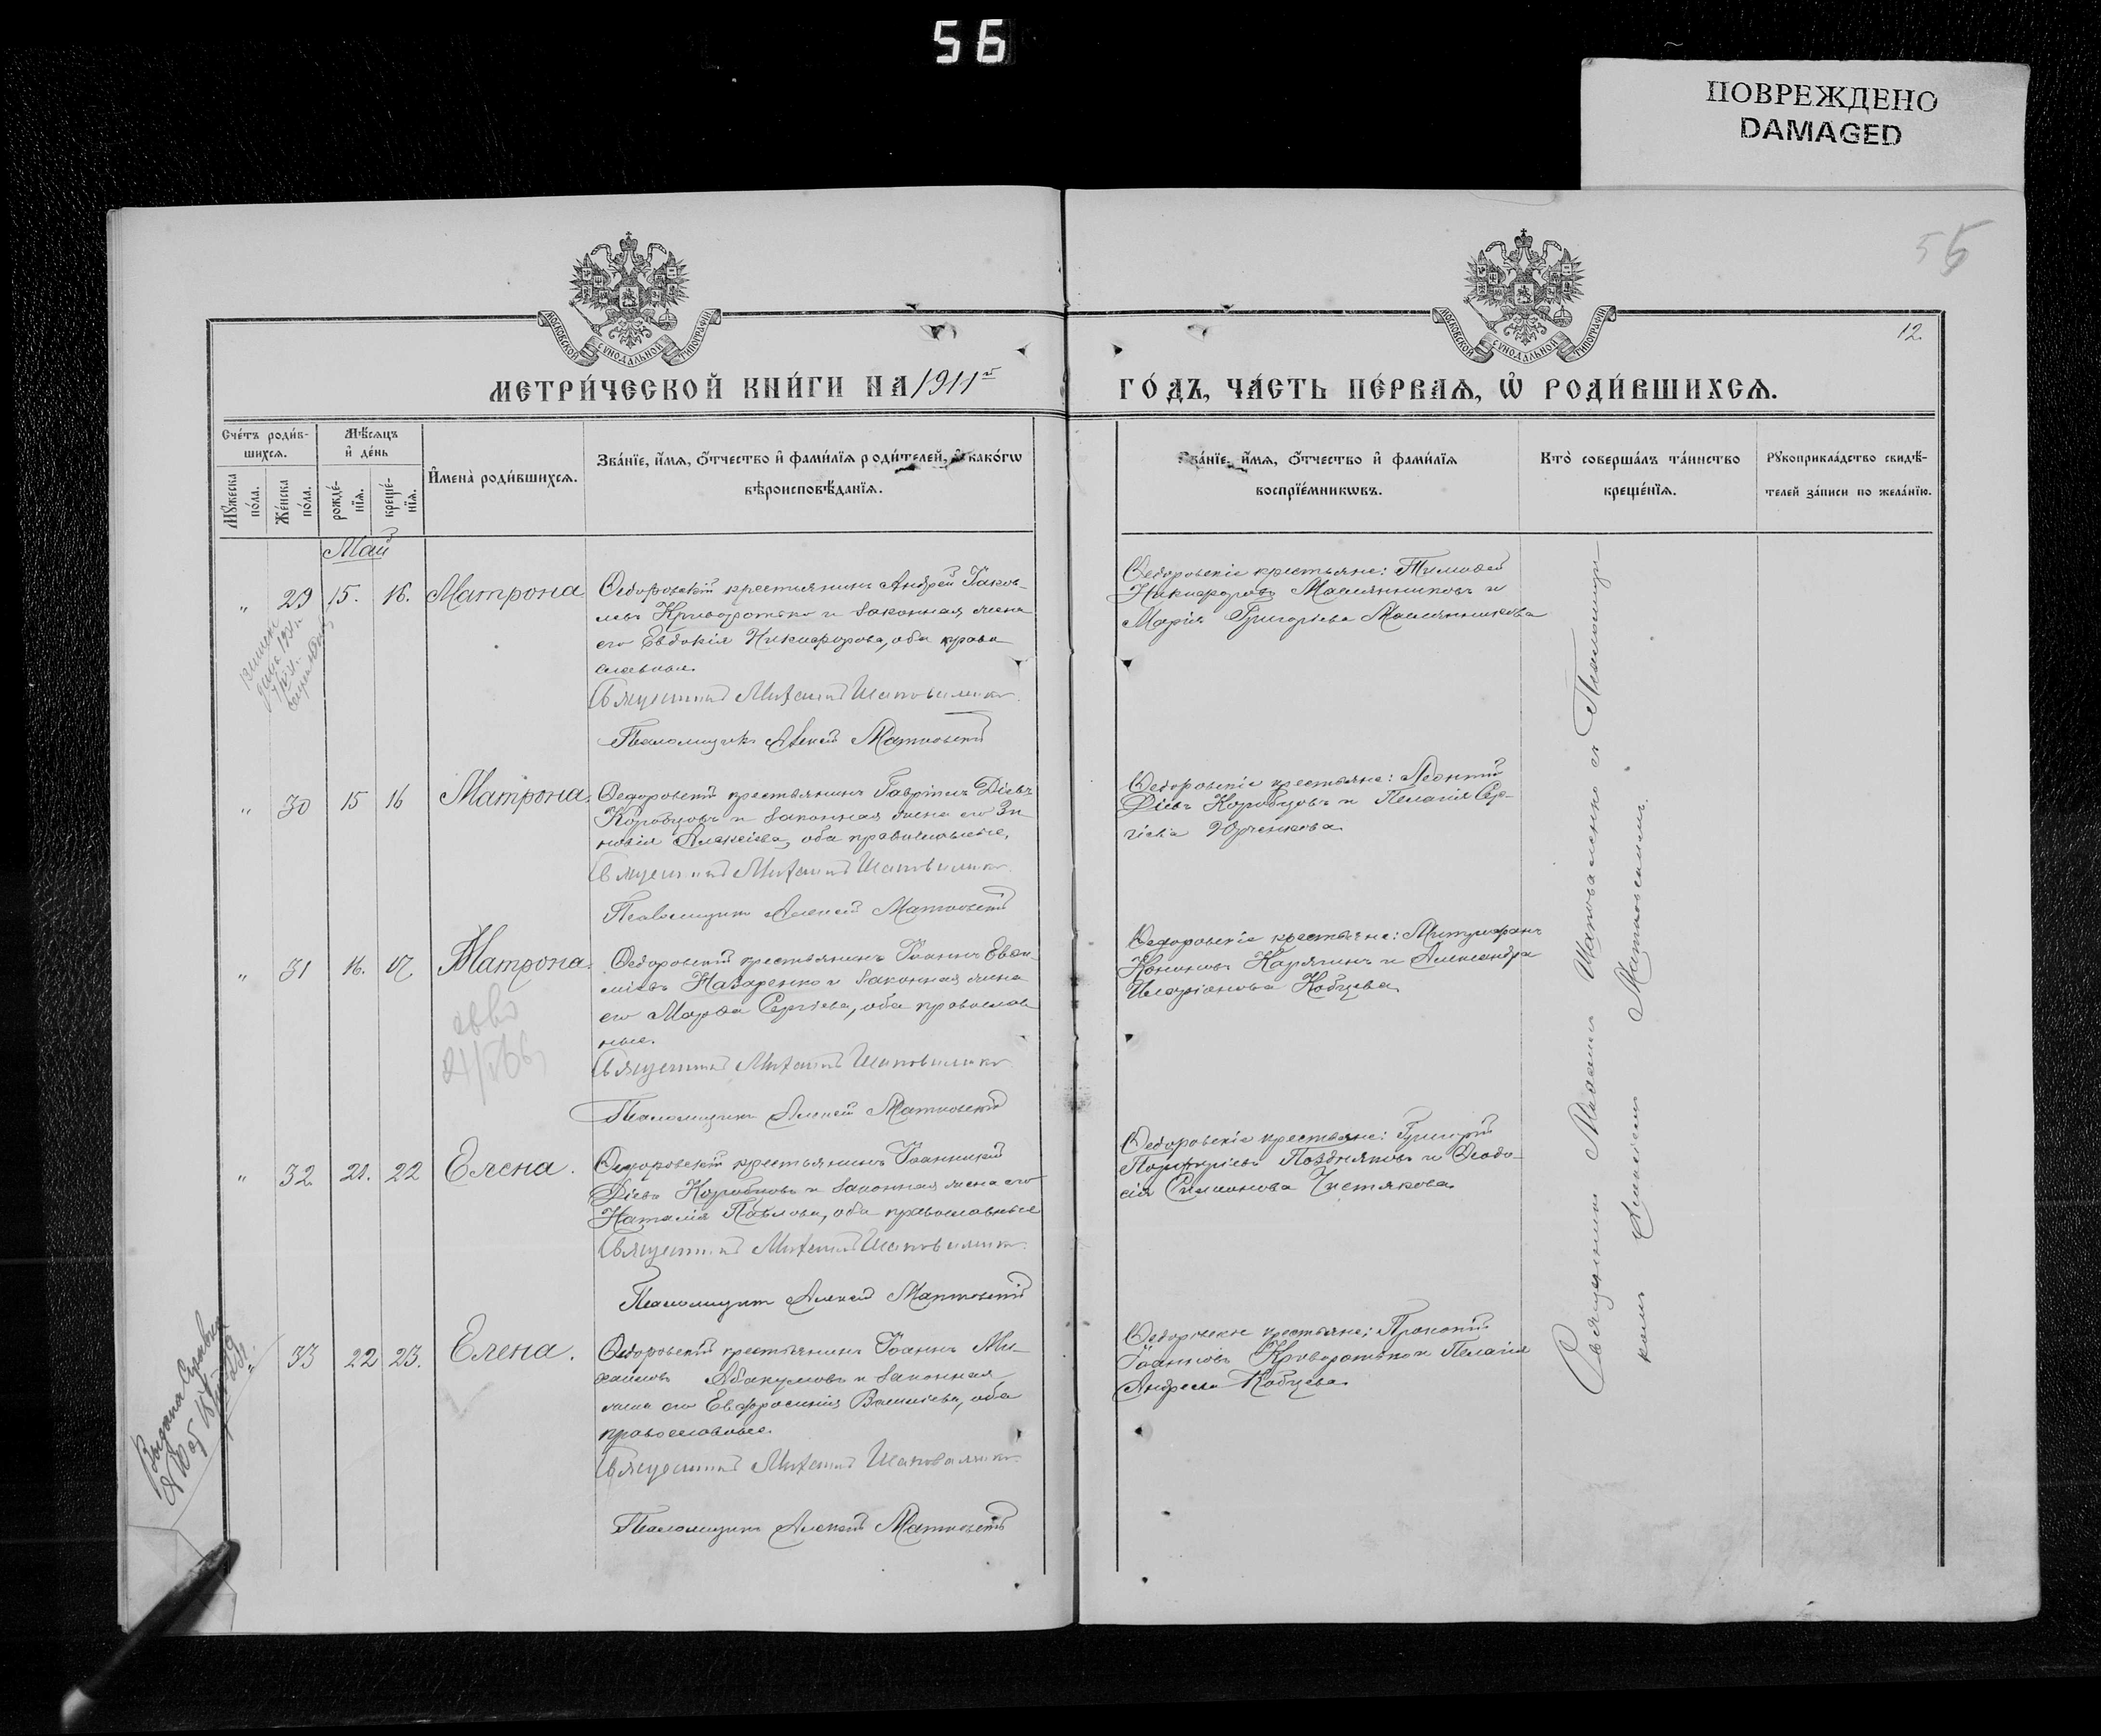 56
ПОВРЕЖДЕНО
DAMAGED
55
12.
МОСКОВСКОЙ СѴНОДАЛЬНОЙ ТИПОГРАФІИ
МОСКОВСКОЙ СѴНОДАЛЬНОЙ ТИПОГРАФІИ
МЕТРИ́ЧЕСКОЙ КНИ́ГИ НА 1911й
ГО́ДЪ, ЧА́СТЬ ПЕ́РВАѦ, Ѡ҆ РОДИ́ВШИХСѦ.
Сче́тъ роди́в-
шихсѧ.
Мꙋ́жеска по́ла.
Же́нска по́ла.
Мѣ́сѧцъ
и҆ де́нь
рожде́-
нїѧ.
креще́-
нїѧ.
И҆мена̀ роди́вшихсѧ.
Зва́нїе, и҆́мѧ, ѻ҆́тчество и҆ фами́лїѧ роди́телей, и҆ како́гѡ
вѣроисповѣ́данїѧ.
Зва́нїе, и҆́мѧ, ѻ҆́тчество и҆ фами́лїѧ
воспрїе́мникѡвъ.
Кто̀ соверша́лъ та́инство
креще́нїѧ.
Рꙋкоприкла́дство свидѣ́-
телей за́писи по жела́нїю.
Май
„ 29 15. 16. Матрона
Ѳедоровскій крестьянинъ Андрей Іаков-
левъ Криворотько и законная жена
его Евдокія Никифорова, оба право
славные.
Священникъ Михаилъ Шаповаленко
Псаломщикъ Алексѣй Матковскій
Ѳедоровскіе крестьяне: Тимоѳей
Никифоровъ Масленниковъ и
Марія Григоріева Масленникова
„ 30 15 16 Матрона.
Ѳедоровскій крестьянинъ Гавріилъ Діевъ
Коробцовъ и законная жена его Зи
новія Алексіева, оба православные,
Священникъ Михаилъ Шаповаленко
Псаломщикъ Алексѣй Матковскій
Ѳедоровскіе крестьяне: Леонтій
Діевъ Коробцовъ и Пелагія Сер-
гіева Юрченкова
„ 31 16. 17 Матрона.
Ѳедоровскій крестьянинъ Іоаннъ Евѳи-
міевъ Назаренко и законная жена
его Марѳа Сергіева, оба православ
ные.
Священникъ Михаилъ Шаповаленко
Псаломщикъ Алексѣй Матковскій
Ѳедоровскіе крестьяне: Митрофанъ
Кононовъ Карягинъ и Александра
Иларіонова Кобцева.
„ 32 21. 22 Елена.
Ѳедоровскій крестьянинъ Іоанникій
Діевъ Коробцовъ и законная жена его
Наталія Павлова, оба православные
Священникъ Михаилъ Шаповаленко
Псаломщикъ Алексѣй Матковскій
Ѳедоровскіе крестьяне: Григорій
Порфиріевъ Поздняковъ и Ѳеодо-
сія Симонова Чистякова.
„ 33 22 23. Елена.
Ѳедоровскій крестьянинъ Іоаннъ Ми-
хаиловъ Абакумовъ и законная
жена его Евфросинія Василіева, оба
православные.
Священникъ Михаилъ Шаповаленко
Псаломщикъ Алексѣй Матковскій
Ѳедоровскіе крестьяне: Прокопій
Іоанновъ Криворотько и Пелагія
Андреева Кобцева.
Священникъ Михаилъ Шаповаленко съ Псаломщи-
комъ Алексѣемъ Матковскимъ.